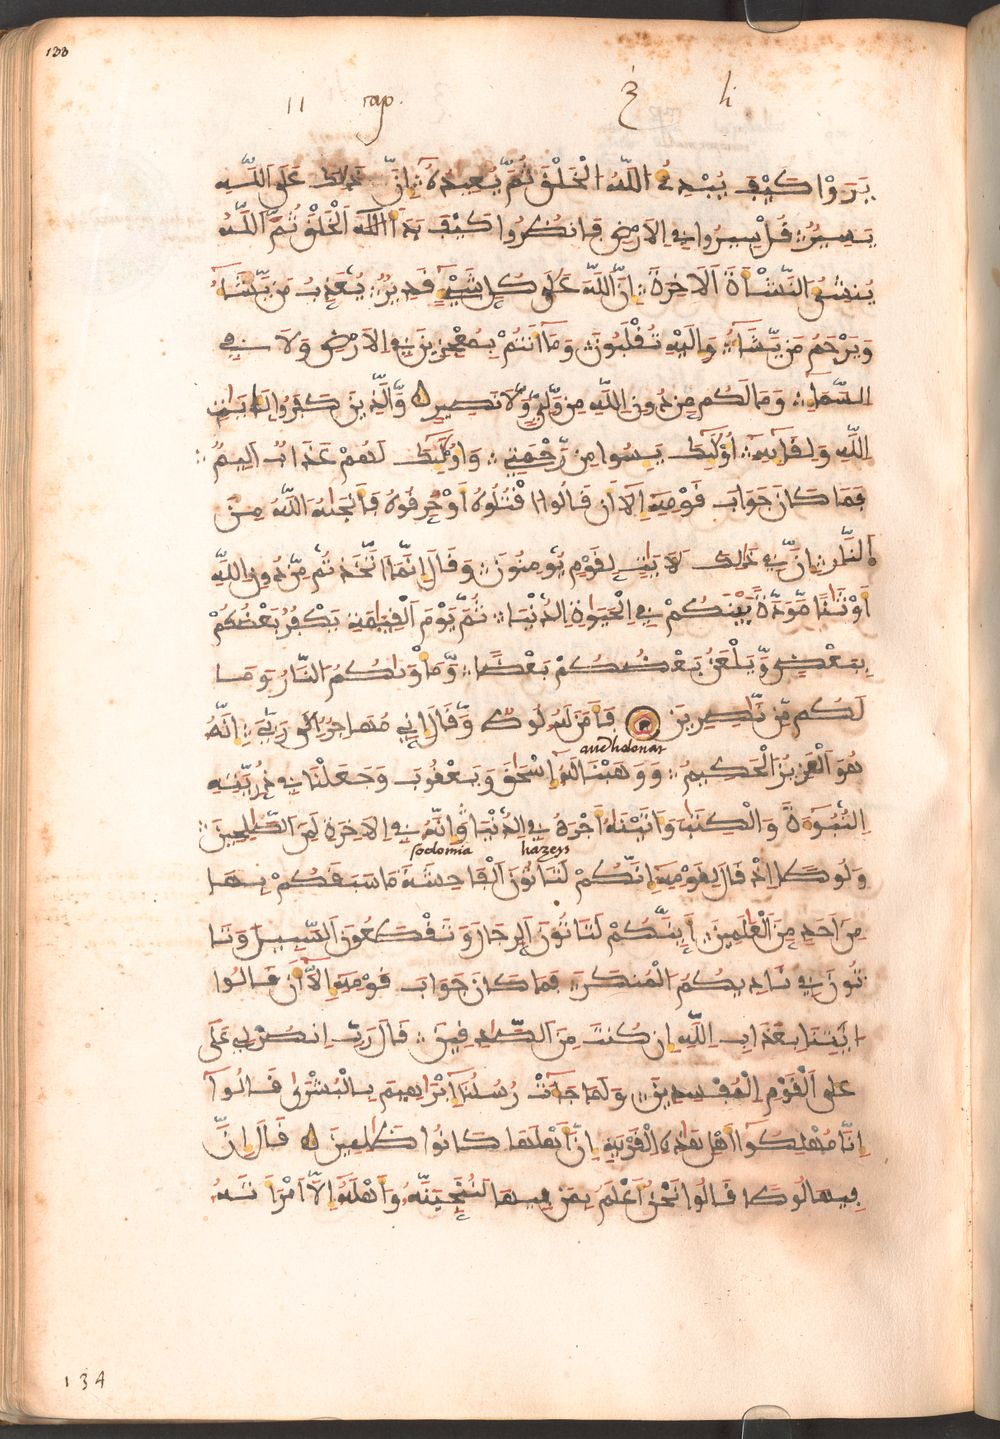 133
11 cap. 3 li
يَرَوْا كَيْفَ يُبْدِئُ اللَّهُ الْخَلْقَ ثُمَّ يُعِيدُهُ إِنَّ ذَلِكَ عَلَى اللَّهِ
يَسِيرٌ قُلْ سِيرُوا فِي الاَرْضِ فَانظُرُوا كَيْفَ بَدَأَ الْخَلْقَ ثُمَّ اللَّهُ
يُنشِئُ النَّشْأَةَ الاَخِرَةَ إِنَّ اللَّهَ عَلَى كُلِّ شَيْءٍ قَدِيرٌ يُعَذِّبُ مَن يَّشَاءُ
وَيَرْحَمُ مَن يَّشَاءُ وَإِلَيْهِ تُقْلَبُونَ وَمَا أَنتُمْ بِمُعْجِزِينَ فِي الاَرْضِ وَلاَ فِي
السَّمَاءِ وَمَا لَكُم مِّن دُونِ اللَّهِ مِن وَّلِيٍّ وَّلاَ نَصِيرٍ وَّالَّذِينَ كَفَرُوا بَِٔايَتِ
اللَّهِ وَلِقَائِهِ أُوْلَئِكَ يَئِسُوا مِن رَّحْمَتِي وَأُوْلَئِكَ لَهُمْ عَذَابٌ اَلِيمٌ
فَمَا كَانَ جَوَابَ قَوْمِهِ إِلاَّ أَن قَالُوا اقْتُلُوهُ أَوْ حَرِّقُوهُ فَأَنجَيهُ اللَّهُ مِنَ
النَّارِ إِنَّ فِي ذَلِكَ لَأَيَتٍ لِقَوْمٍ يُومِنُونَ وَقَالَ إِنَّمَا اتَّخَذتُّم مِّن دُونِ اللَّهِ
أَوْثَنًا مَّوَدَّةً بَيْنَكُمْ فِي الْحَيَوةِ الدُّنْيَا ثُمَّ يَوْمَ الْقِيَمَةِ يَكْفُرُ بَعْضُكُمْ
بِبَعْضٍ وَّيَلْعَنُ بَعْضُكُمْ بَعْضًا وَّمَأْوَيكُمُ النَّارُ وَمَا
لَكُم مِّن نَّصِرِينَ فَأمَنَ لَهُ لُوطٌ وَّقَالَ إِنِّي مُهَاجِرٌ إِلَى رَبِّي إِنَّهُ
audhelonar
هُوَ الْعَزِيزُ الْحَكِيمُ وَوَهَبْنَا لَهُ إِسْحَقَ وَيَعْقُوبَ وَجَعَلْنَا فِي ذُرِّيَّتِهِ
النُّبُوَّةَ وَالْكِتَبَ وَءَاتَيْنَهُ أَجْرَهُ فِي الدُّنْيَا وَإِنَّهُ فِي الاَخِرَةِ لَمِنَ الصَّلِحِينَ
sodomia hazeys
وَلُوطًا إِذْ قَالَ لِقَوْمِهِ إِنَّكُمْ لَتَاتُونَ الْفَاحِشَةَ مَا سَبَقَكُمْ بِهَا
مِنَ اَحَدٍ مِّنَ الْعَلَمِينَ أَئِنَّكُمْ لَتَاتُونَ الرِّجَالَ وَتَقْطَعُونَ السَّبِيلَ وَتَا
تُونَ فِي نَادِيكُمُ الْمُنكَرَ فَمَا كَانَ جَوَابَ قَوْمِهِ إِلاَّ أَن قَالُوا
ايتِنَا بِعَذَابِ اللَّهِ إِن كُنتَ مِنَ الصَّدِقِينَ قَالَ رَبِّ انصُرْنِي عَلَى
عَلَى الْقَوْمِ الْمُفْسِدِينَ وَلَمَّا جَاءَتْ رُسُلُنَا إِبْرَاهِيمَ بِالْبُشْرَى قَالُوا
إِنَّا مُهْلِكُوا أَهْلِ هَذِهِ الْقَرْيَةِ إِنَّ أَهْلَهَا كَانُوا ظَلِمِينَ قَالَ إِنَّ
فِيهَا لُوطًا قَالُوا نَحْنُ أَعْلَمُ بِمَن فِيهَا لَنُنَجِّيَنَّهُ وَأَهْلَهُ إِلاَّ امْرَأَتَهُ
134